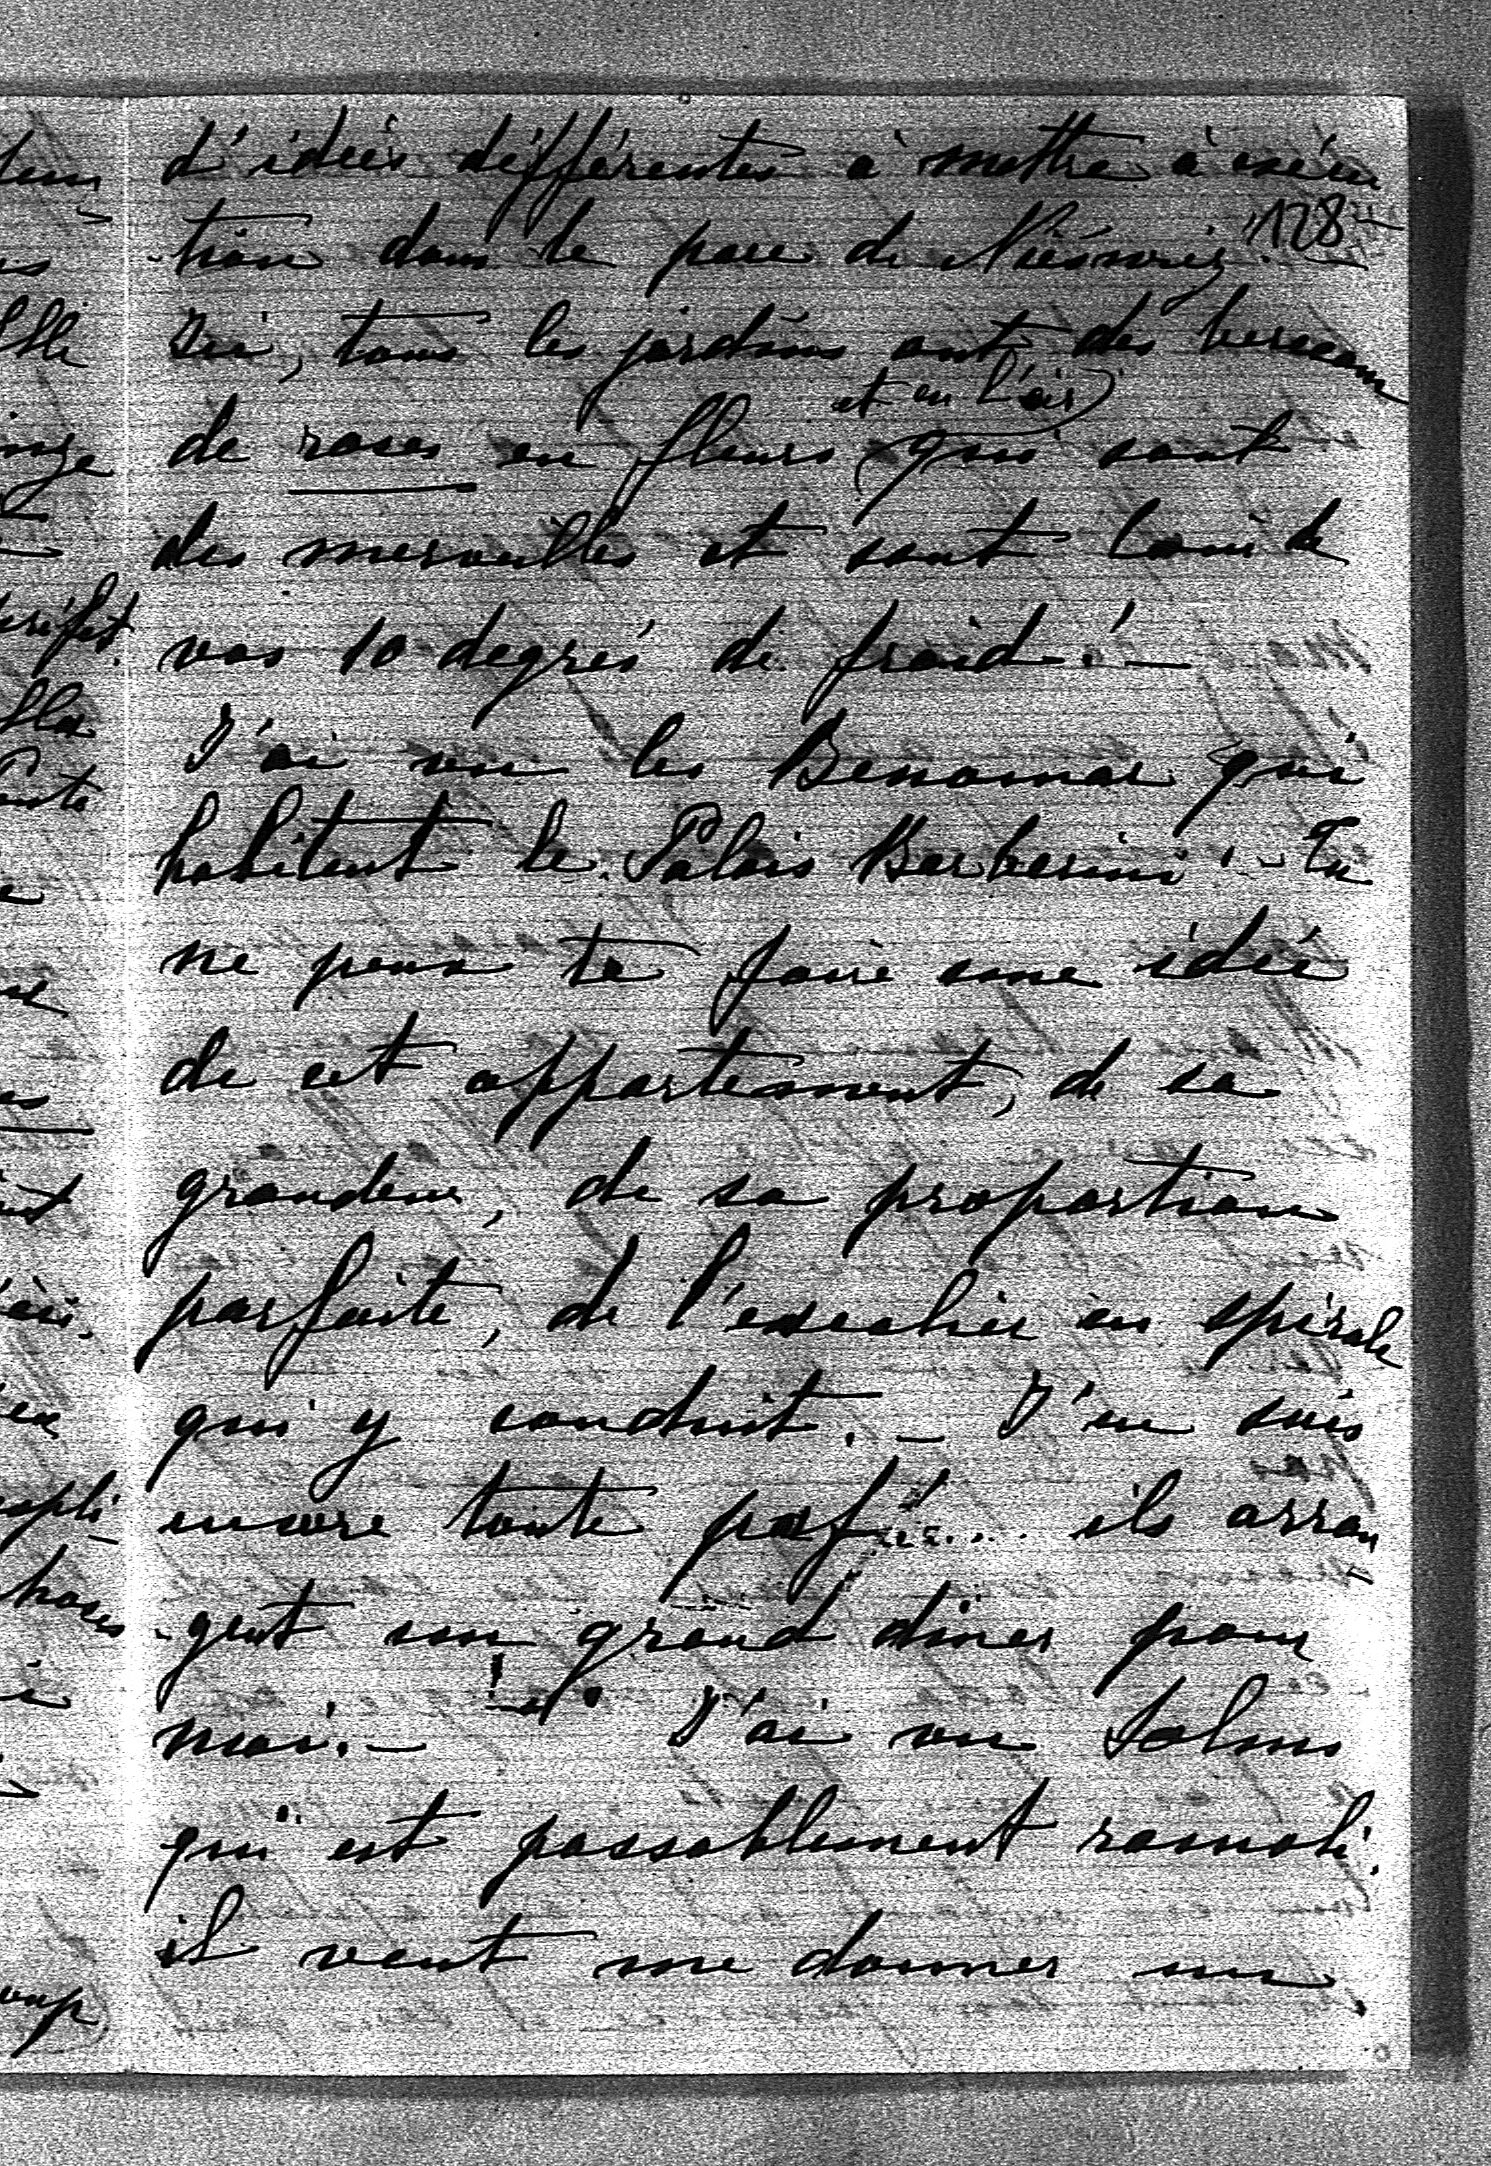 d'idées différentes à mettre à exécu
128
-tion dans le parc de Nieswież.
Ici, tous les jardins ont des berceaux
et en l'air
de roses en fleurs qui sont
des merveilles et sont loin de
vos 10 degrés de froid! –
J'ai vu les Benomar qui
habitent le Palais Barberini. – Tu
ne peux te faire une idée
de cet appartement, de sa
grandeur, de sa proportion
parfaite, de l'escalier en spirale
qui y conduit. – J'en suis
encore toute paf!.... ils arran
-gent un grand diner pour
moi. – J'ai vu Solms
qui est passablement ramoli.
il veut me donner un